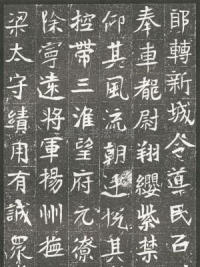 郎轉新城令導民
奉車都尉翔纓紫禁
仰其風流朝廷悅其
控帶三淮望府元僚
除寧遠將軍揚州撫
梁太守績用有誠眾